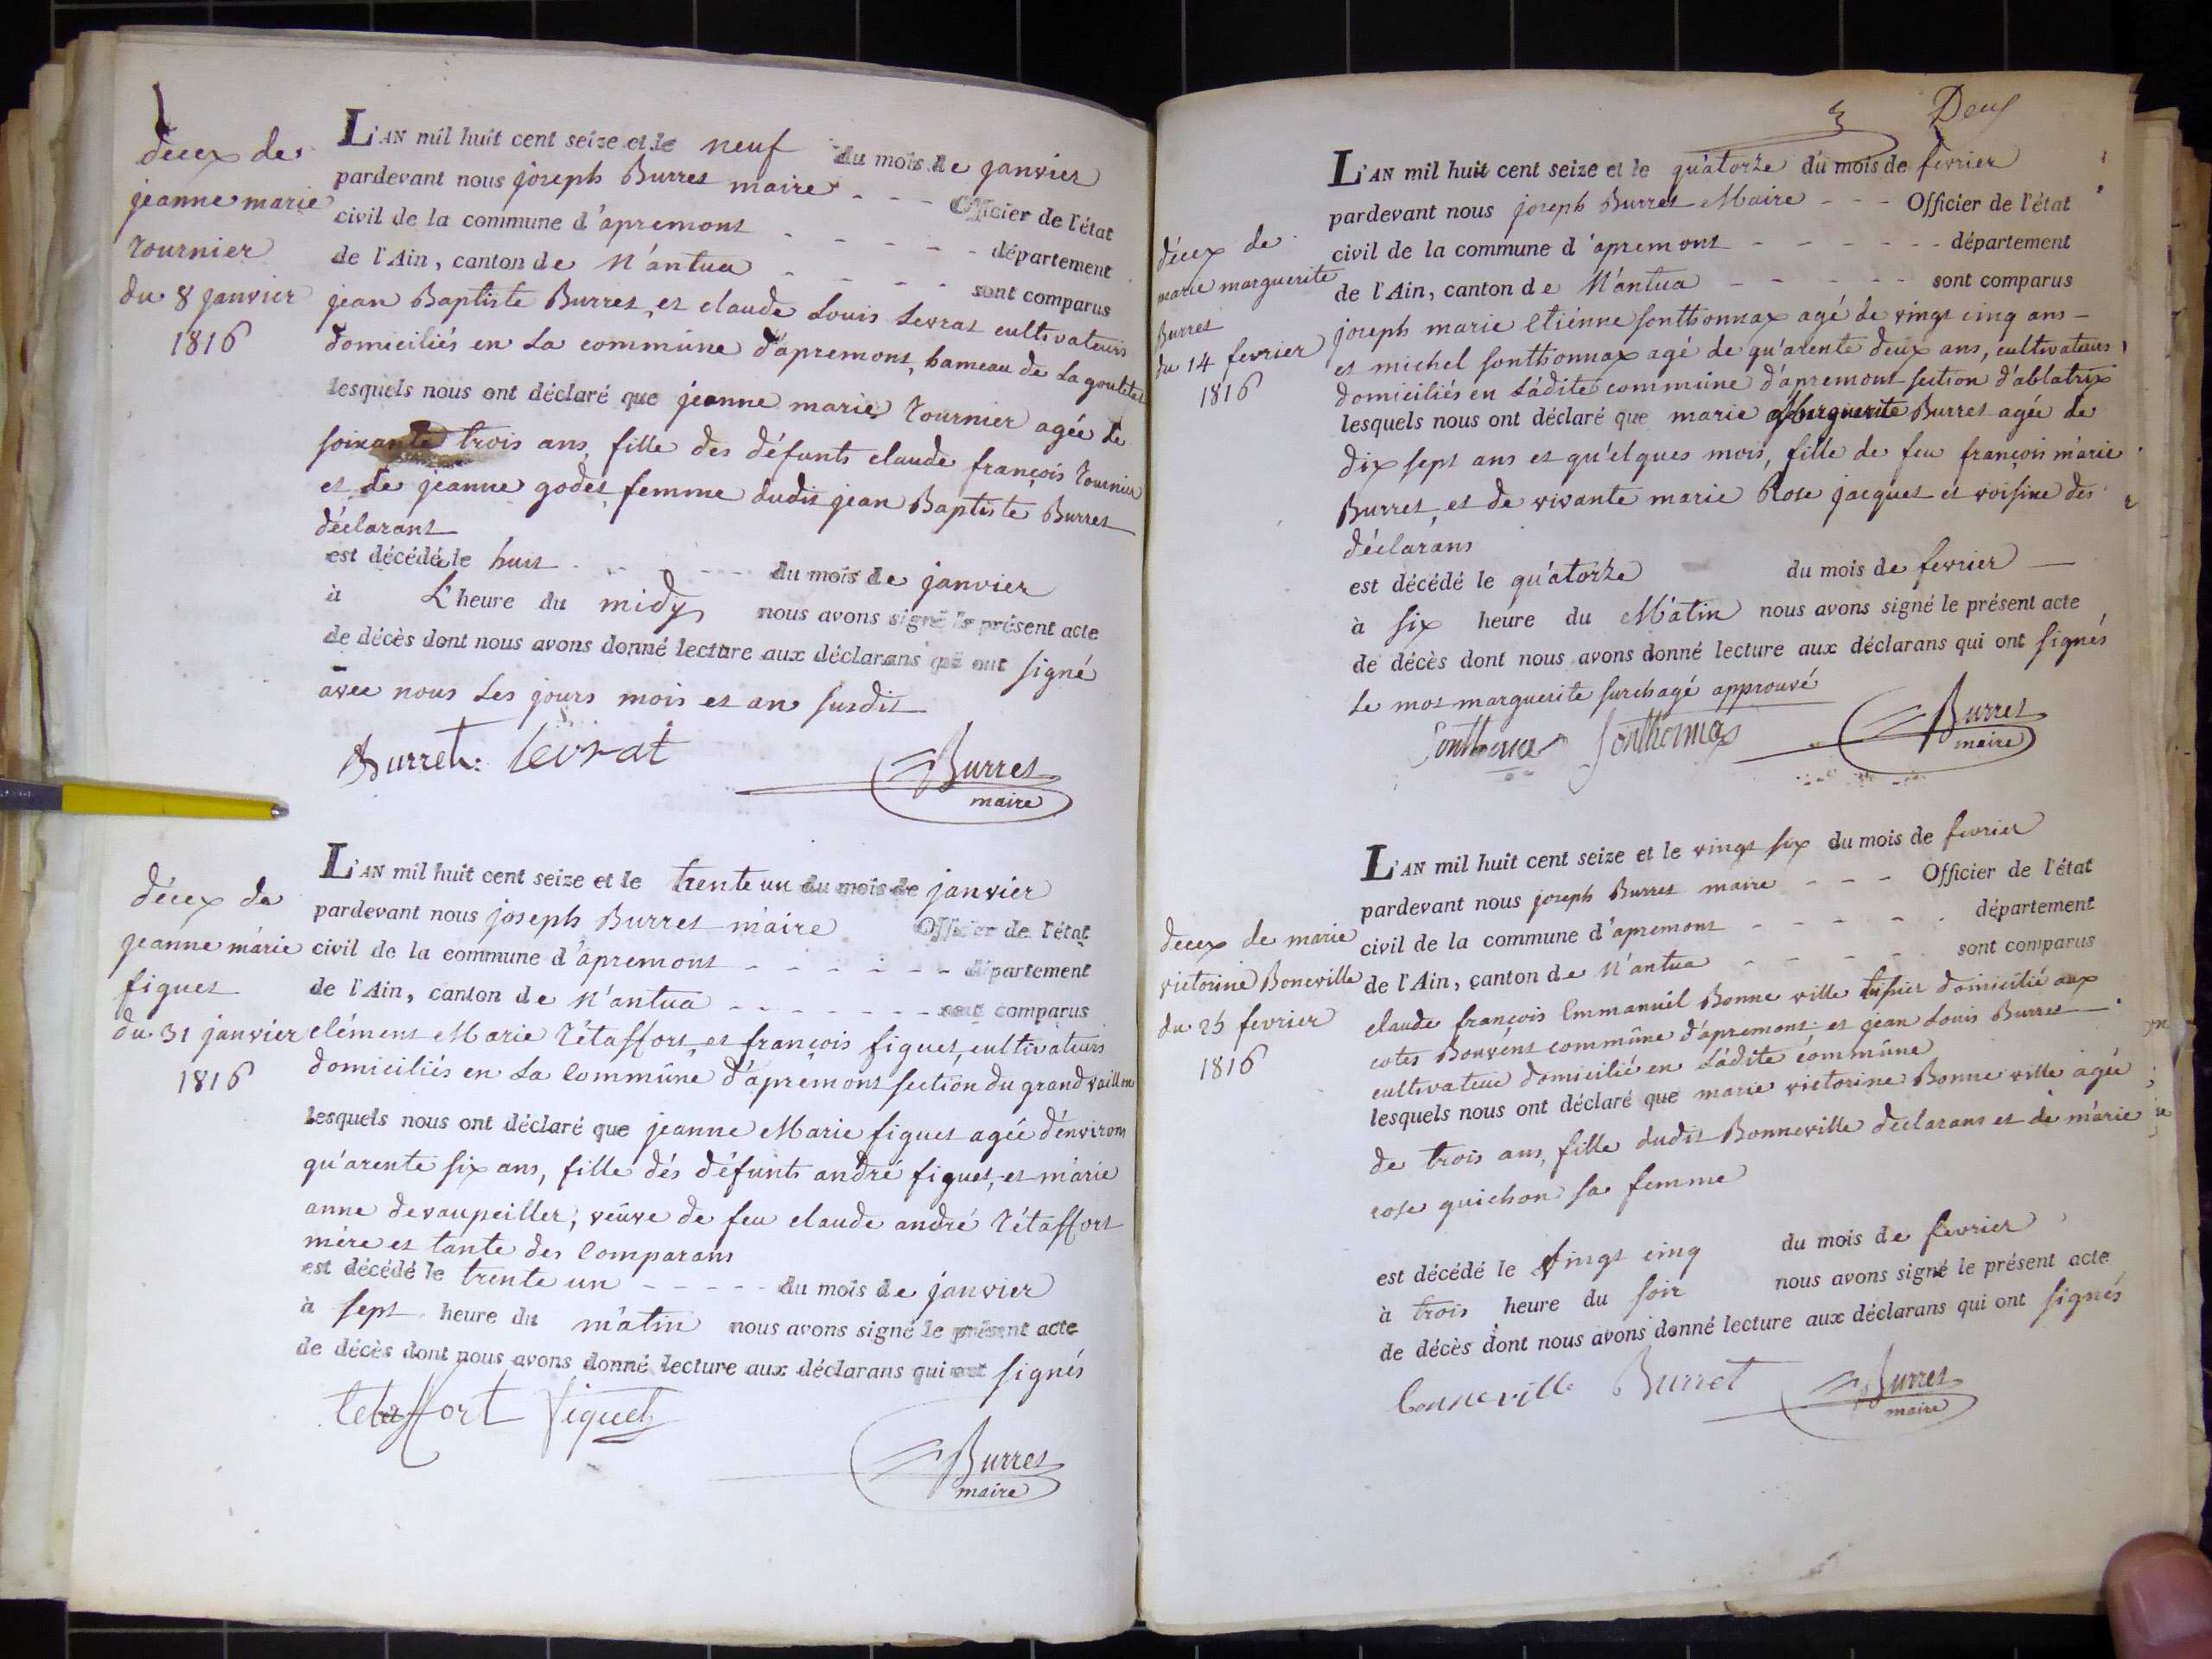 decex de
jeanne marie
tournier
du 8 janvier
1816
L'AN mil huit cent seize et le neuf du mois de janvier
pardevant nous joseph Burret maire - - - Officier de l'état
civil de la commune d'apremont - - - - - département
de l'Ain, canton de N'antua - - - - sont comparus
jean Baptiste Burret, et claude Louis Levrat cultivateurs
domiciliés en La commune d'apremont, hameau de La
lesquels nous ont déclaré que jeanne marie tournier agée de
soixante trois ans, fille des défunts claude françois tournier
et de jeanne godet, femme dudit jean Baptiste Burret
déclarant
est décédé le huit - - - - du mois de janvier
à L'heure du midy nous avons signé le présent acte
de décès dont nous avons donné lecture aux déclarans qui ont signé
avec nous Les jours mois et an susdit
Burret. levrat
Burret
maire
décex de
jeanne marie
figuet
du 31 janvier
1816
L'AN mil huit cent seize et le trente un du mois de janvier
pardevant nous joseph Burret maire Officier de l'état
civil de la commune d'apremont - - - - - - département
de l'Ain, canton de N'antua - - - - - - - sont comparus
clément Marie tétaffort, et françois figuet, cultivateurs
domiciliés en La Commune d'apremont section du grand
lesquels nous ont déclaré que jeanne Marie figuet agée d'environ
qu'arente six ans, fille dés défunts andré figuet, et marie
anne devaupeiller, veuve de feu claude andré tétaffort
mère et tante des Comparans
est décédé le trente un - - - - - du mois de janvier
à sept heure du matin nous avons signé le présent acte
de décès dont nous avons donné lecture aux déclarans qui ont signés
tetaffort figuet
Burret
maire
3 Deux
décex de
marie marguerite
Burret
du 14 fevrier
1816
L'AN mil huit cent seize et le qu'atorze du mois de fevrier
pardevant nous joseph Burret Maire - - - Officier de l'état
civil de la commune d'apremont - - - - - - département
de l'Ain, canton de N'antua - - - - - sont comparus
joseph marie Etiénne sonthonnax agé de vingt cinq ans -
et michel sonthonnax agé de qu'arente deux ans, cultivateurs
domiciliés en Ladite commune d'apremont section d'ablatrix
lesquels nous ont déclaré que marie Marguerite Burret agée de
dix sept ans et qu'elques mois, fille de feu françois marie
Burret, et de vivante marie Rose jacquet et voisine des
déclarans
est décédé le qu'atorze du mois de fevrier
à six heure du Matin nous avons signé le présent acte
de décès dont nous avons donné lecture aux déclarans qui ont signés
Le mot marguerite surchagé approuvé
Sonthonnax Sonthonnax
Burret
maire
decex de marie
victorine Boneville
du 25 fevrier
1816
L'AN mil huit cent seize et le vingt six du mois de fevrier
pardevant nous joseph Burret maire - - - Officier de l'état
civil de la commune d'apremont - - - - - département
de l'Ain, canton de N'antua - - - - - sont comparus
claude françois Emmanuél Bonne ville tissier domicilié aux
cotes Bouvent commune d'apremont et jean Louis Burret
cultivateur domicilié en Ladite commune
lesquels nous ont déclaré que marie victorine Bonne ville agée
de trois ans, fille dudit Bonneville declarans et de marie
rose guichon sa femme
est décédé le vingt cinq du mois de fevrier
à trois heure du soir nous avons signé le présent acte
de décès dont nous avons donné lecture aux déclarans qui ont signés
bonneville Burret
Burret
maire